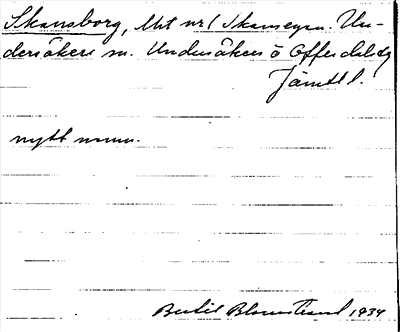 Skansborg, lht nr 1 Skansegm. Un-
dersåkers sn. Undersåkers o Offerdals tg
Jämtl l.
nytt namn.
Bertil Blomstrand 1934